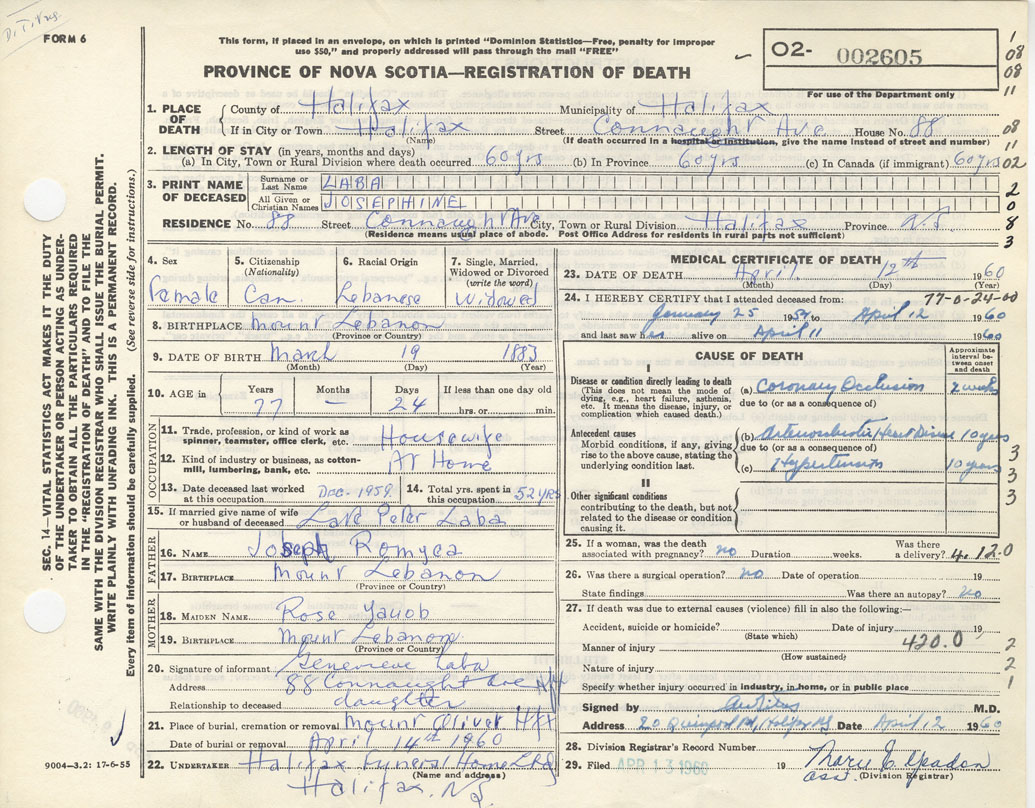 FORM 6
This form, if placed in an envelope, on which is printed "Dominion Statistics—Free, penalty for improper
use $50," and properly addressed will pass through the mail "FREE"
PROVINCE OF NOVA SCOTIA—REGISTRATION OF DEATH
02- 002605
For use of the Department only
1. PLACE OF DEATH
County of Halifax Municipality of Halifax
If in City or Town Halifax Street Connaught Ave House No. 88
(Name) (If death occurred in a hospital or institution, give the name instead of street and number)
2. LENGTH OF STAY (in years, months and days)
(a) In City, Town or Rural Division where death occurred 60 yrs (b) In Province 60 yrs (c) In Canada (if immigrant) 60 yrs
3. PRINT NAME OF DECEASED
Surname or Last Name LABA
All Given or Christian Names JOSEPHINE
RESIDENCE No. 88 Street Connaught Ave City, Town or Rural Division Halifax Province N.S
(Residence means usual place of abode. Post Office Address for residents in rural parts not sufficient)
4. Sex
Female
5. Citizenship (Nationality)
Can.
6. Racial Origin
Lebanese
7. Single, Married, Widowed or Divorced (write the word)
Widowed
8. BIRTHPLACE Mount Lebanon
(Province or Country)
9. DATE OF BIRTH March 19 1883
(Month) (Day) (Year)
10. AGE in Years 77 Months — Days 24 If less than one day old hrs. or min.
OCCUPATION
11. Trade, profession, or kind of work as spinner, teamster, office clerk, etc. Housewife
12. Kind of industry or business, as cotton-mill, lumbering, bank, etc. At Home
13. Date deceased last worked at this occupation Dec. 1959.
14. Total yrs. spent in this occupation 52 yrs
15. If married give name of wife or husband of deceased Late Peter Laba
FATHER
16. NAME Joseph
17. BIRTHPLACE Mount Lebanon
(Province or Country)
MOTHER
18. MAIDEN NAME Rose
19. BIRTHPLACE Mount Lebanon
(Province or Country)
20. Signature of informant Genevieve Laba
Address 88 Connaught Ave Hfx
Relationship to deceased daughter
21. Place of burial, cremation or removal Mount Olivet Hfx
Date of burial or removal April 14th 1960
22. UNDERTAKER Halifax Funeral Home Ltd
(Name and address)
Halifax. N.S.
MEDICAL CERTIFICATE OF DEATH
23. DATE OF DEATH April 12th 1960
(Month) (Day) (Year)
77-0-24-00
24. I HEREBY CERTIFY that I attended deceased from:
January 25 19 to April 12 1960
and last saw her alive on April 11 1960
CAUSE OF DEATH
Approximate interval between onset and death
I
Disease or condition directly leading to death
(This does not mean the mode of dying, e.g., heart failure, asthenia, etc. It means the disease, injury, or complication which caused death.)
(a) Coronary Occlusion 2 weeks
due to (or as a consequence of)
Antecedent causes
Morbid conditions, if any, giving rise to the above cause, stating the underlying condition last.
(b) Heart Disease 10 years
due to (or as a consequence of)
(c) Hypertension 10 years
II
Other significant conditions
contributing to the death, but not related to the disease or condition causing it.
25. If a woman, was the death associated with pregnancy? no Duration weeks. Was there a delivery?
4.12 0
26. Was there a surgical operation? no Date of operation 19
State findings Was there an autopsy? No
27. If death was due to external causes (violence) fill in also the following:—
Accident, suicide or homicide? Date of injury 19
(State which)
420.0
Manner of injury
(How sustained?)
Nature of injury
Specify whether injury occurred in industry, in home, or in public place
Signed by M.D.
Address 20 Quinpool Rd, Halifax NS Date April 12 1960
28. Division Registrar's Record Number
29. Filed APR 13 1960 19 Mary E.
(Division Registrar)
SEC. 14—VITAL STATISTICS ACT MAKES IT THE DUTY
OF THE UNDERTAKER OR PERSON ACTING AS UNDER-
TAKER TO OBTAIN ALL THE PARTICULARS REQUIRED
IN THE "REGISTRATION OF DEATH" AND TO FILE THE
SAME WITH THE DIVISION REGISTRAR WHO SHALL ISSUE THE BURIAL PERMIT.
WRITE PLAINLY WITH UNFADING INK. THIS IS A PERMANENT RECORD.
Every item of information should be carefully supplied. (See reverse side for instructions.)
9004—3.2: 17-6-55
1
08
08
11
08
11
02
2
0
8
3
3
3
3
2
2
1